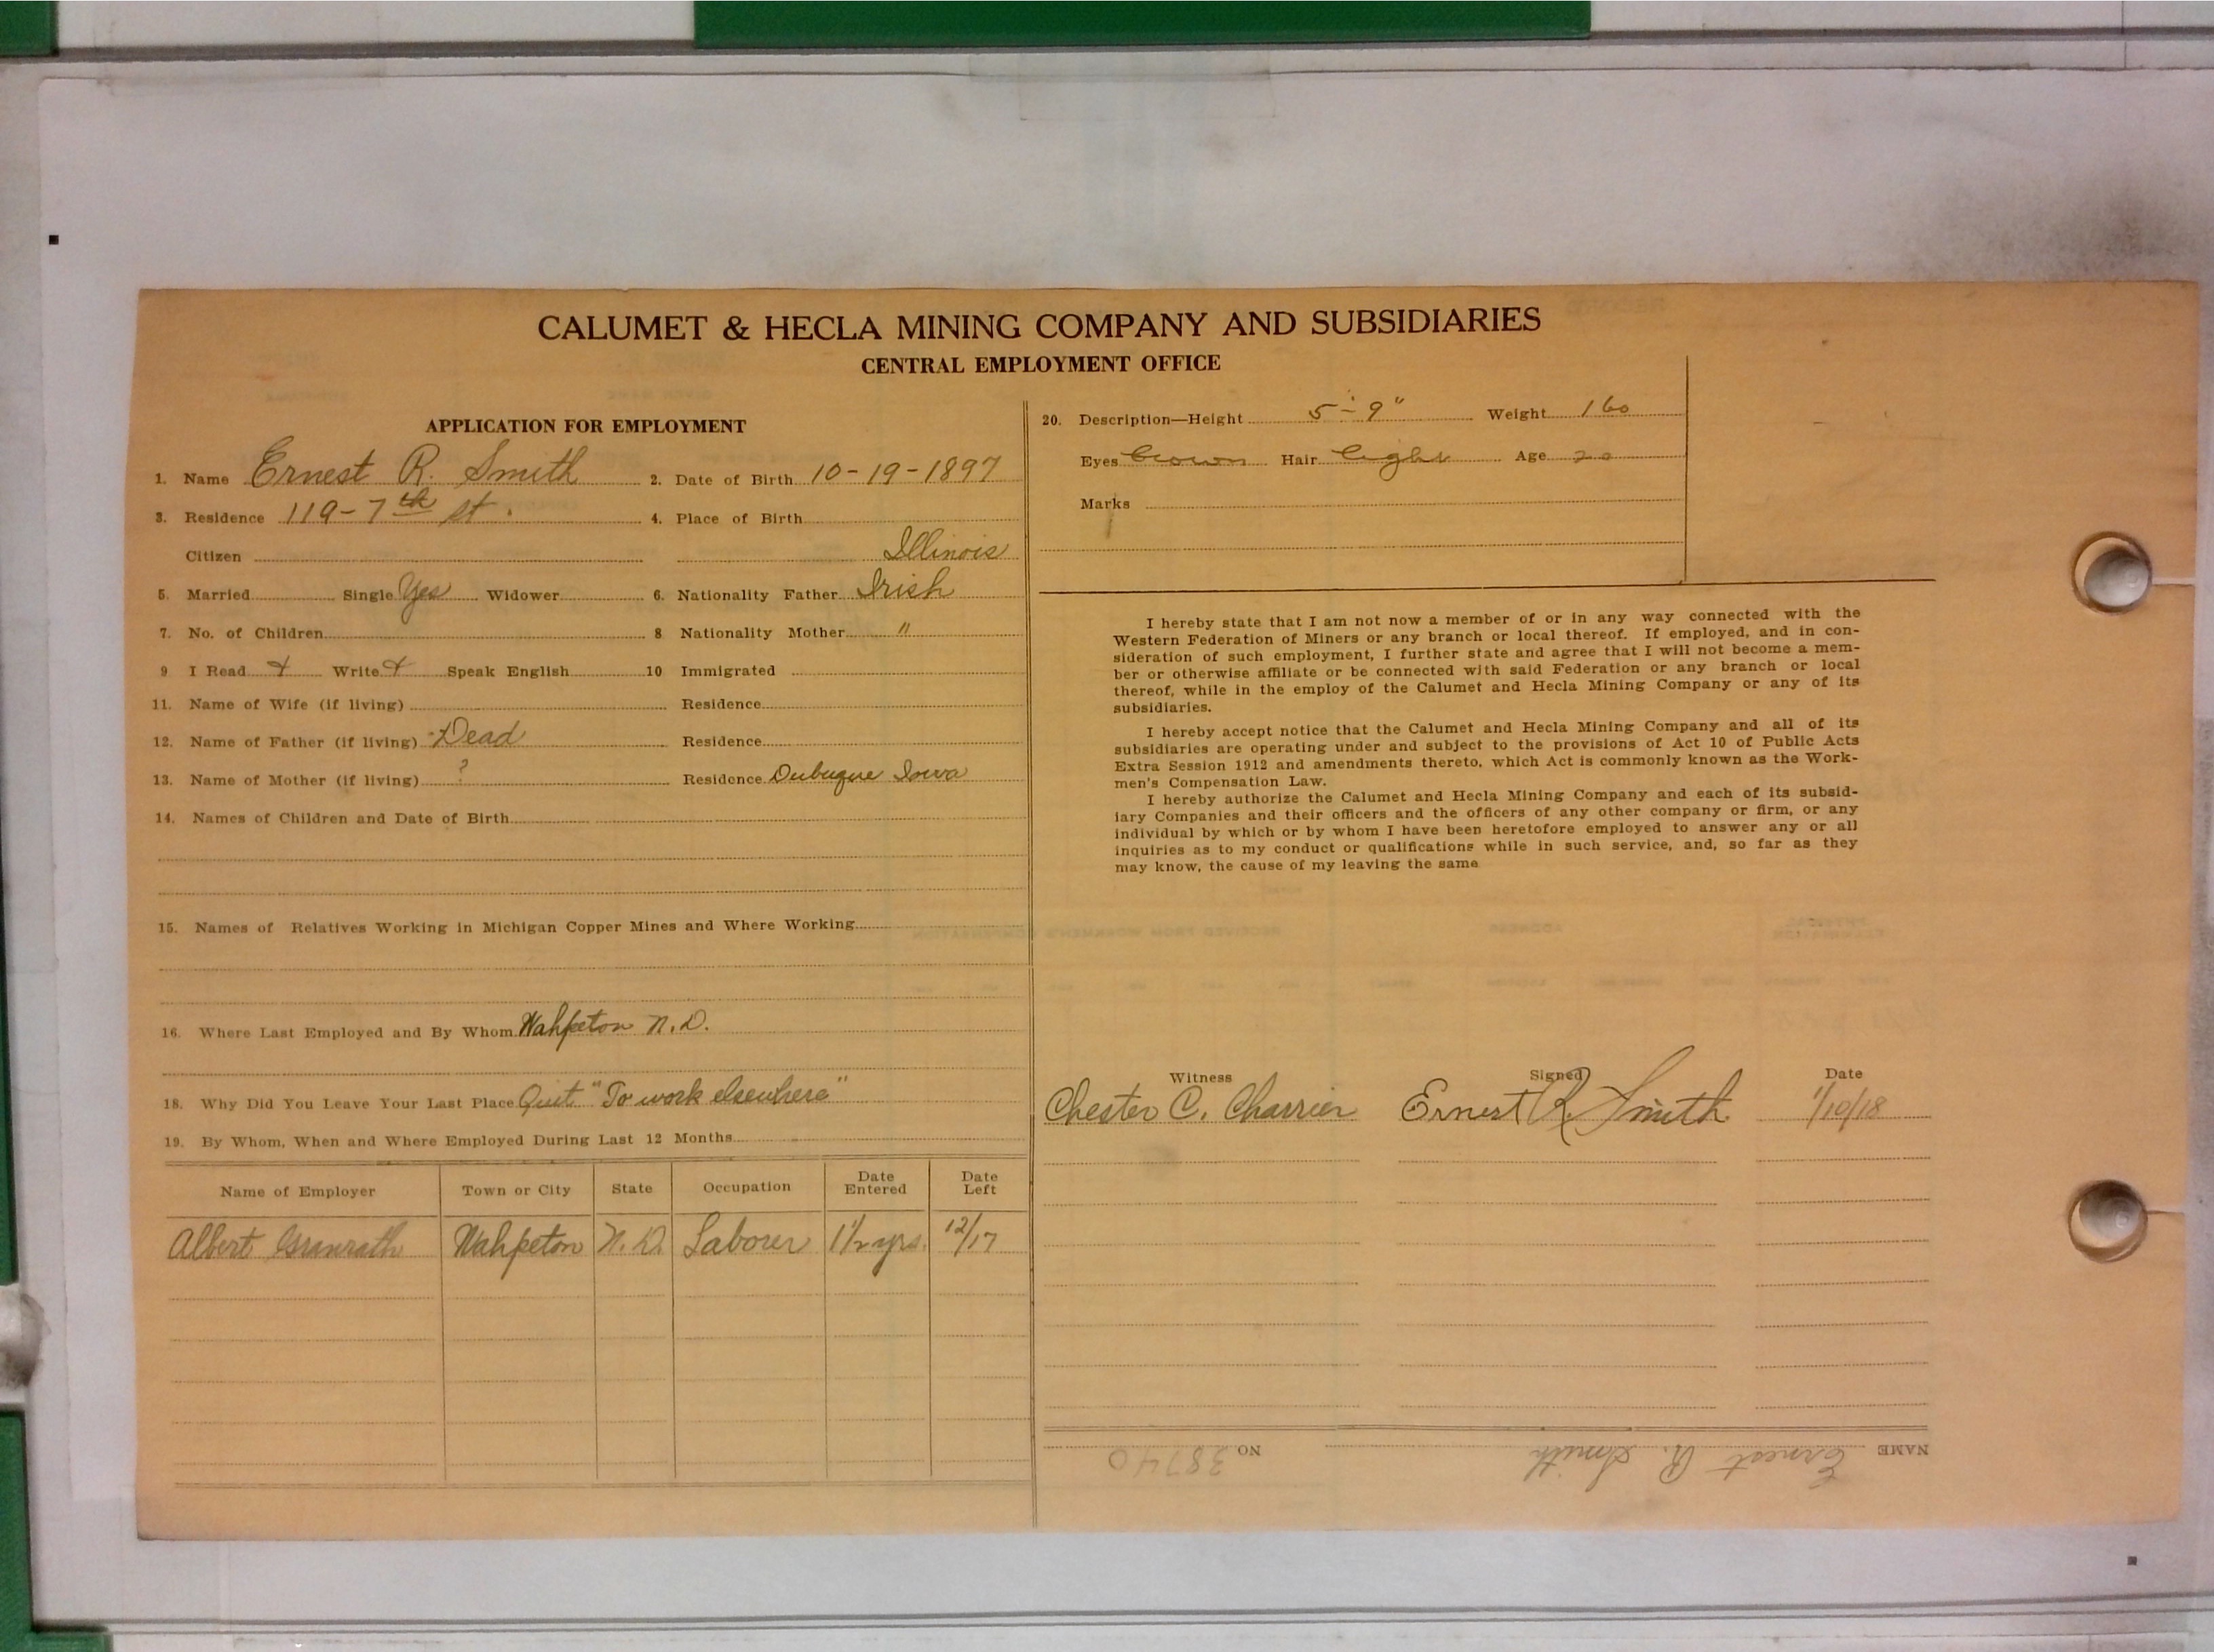 CALUMET & HECLA MINING COMPANY AND SUBSIDIARIES
CENTRAL EMPLOYMENT OFFICE
APPLICATION FOR EMPLOYMENT
1. Name Ernest R. Smith 2. Date of Birth 10-19-1897
3. Residence 119-7th St. 4. Place of Birth
Citizen Illinois
5. Married Single Yes Widower 6. Nationality Father Irish
7. No. of Children 8 Nationality Mother "
9 I Read + Write + Speak English 10 Immigrated
11. Name of Wife (if living) Residence
12. Name of Father (if living) Dead Residence
13. Name of Mother (if living) ? Residence Dubuque Iowa
14. Names of Children and Date of Birth
15. Names of Relatives Working in Michigan Copper Mines and Where Working
16. Where Last Employed and By Whom Wahpeton N.D.
18. Why Did You Leave Your Last Place Quit "To work elsewhere"
19. By Whom, When and Where Employed During Last 12 Months
Name of Employer Town or City State Occupation Date Entered Date Left
Albert Wahpeton N.D. Laborer 1 1/2 yrs. 12/17
20. Description—Height 5'-9" Weight 160
Eyes brown Hair light Age 20
Marks
I hereby state that I am not now a member of or in any way connected with the
Western Federation of Miners or any branch or local thereof. If employed, and in con-
sideration of such employment, I further state and agree that I will not become a mem-
ber or otherwise affiliate or be connected with said Federation or any branch or local
thereof, while in the employ of the Calumet and Hecla Mining Company or any of its
subsidiaries.
I hereby accept notice that the Calumet and Hecla Mining Company and all of its
subsidiaries are operating under and subject to the provisions of Act 10 of Public Acts
Extra Session 1912 and amendments thereto, which Act is commonly known as the Work-
men's Compensation Law.
I hereby authorize the Calumet and Hecla Mining Company and each of its subsid-
iary Companies and their officers and the officers of any other company or firm, or any
individual by which or by whom I have been heretofore employed to answer any or all
inquiries as to my conduct or qualifications while in such service, and, so far as they
may know, the cause of my leaving the same
Witness Signed Date
Chester C. Charrier Ernest R. Smith 1/10/18
NAME Ernest R. Smith NO 38740